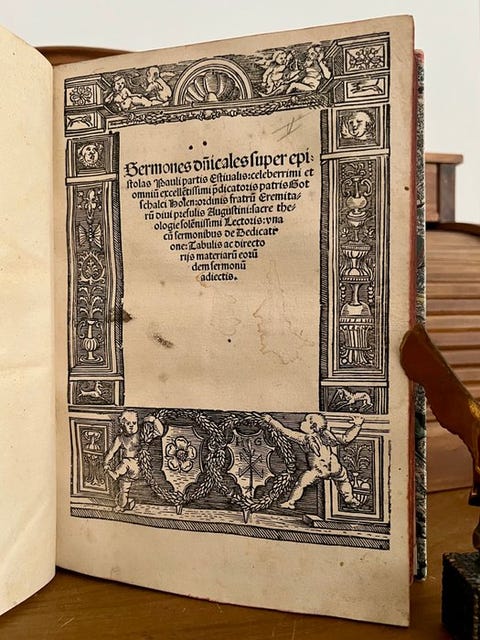 Sermones dn̄icales super epi⸗
stolas Pauli partis Estiualis: celeberrimi et
omniū excellētissimi p̄dicatoris patris Got
schalci Holen: ordinis fratrū Eremita⸗
rū diui presulis Augustini: sacre the⸗
ologie solēnissimi Lectoris: vna
cū sermonibus de Dedicati
one: Tabulis ac directo
rijs materiarū eorū
dem sermonū
adiectis.